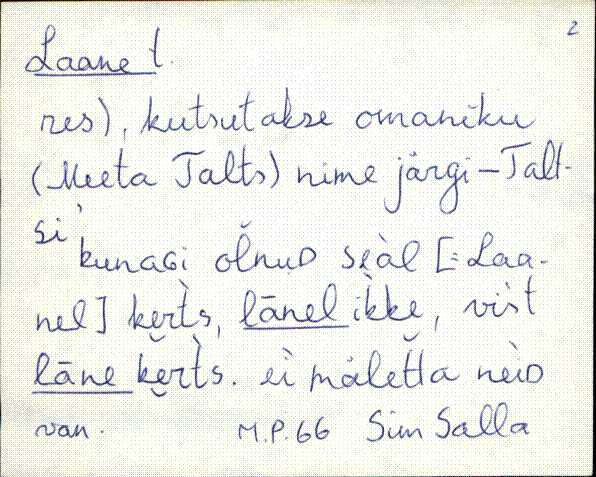 2
Laane t.
res), kutsutakse omaniku
(Meeta Talts) nime järgi – Talt-
si.
kunaGi olnuD seàl [= Laa-
nel] kerts, lānel ikke, vist
lāne kerts. ei mäletta neiD
van. M.P. 66 Sim Salla